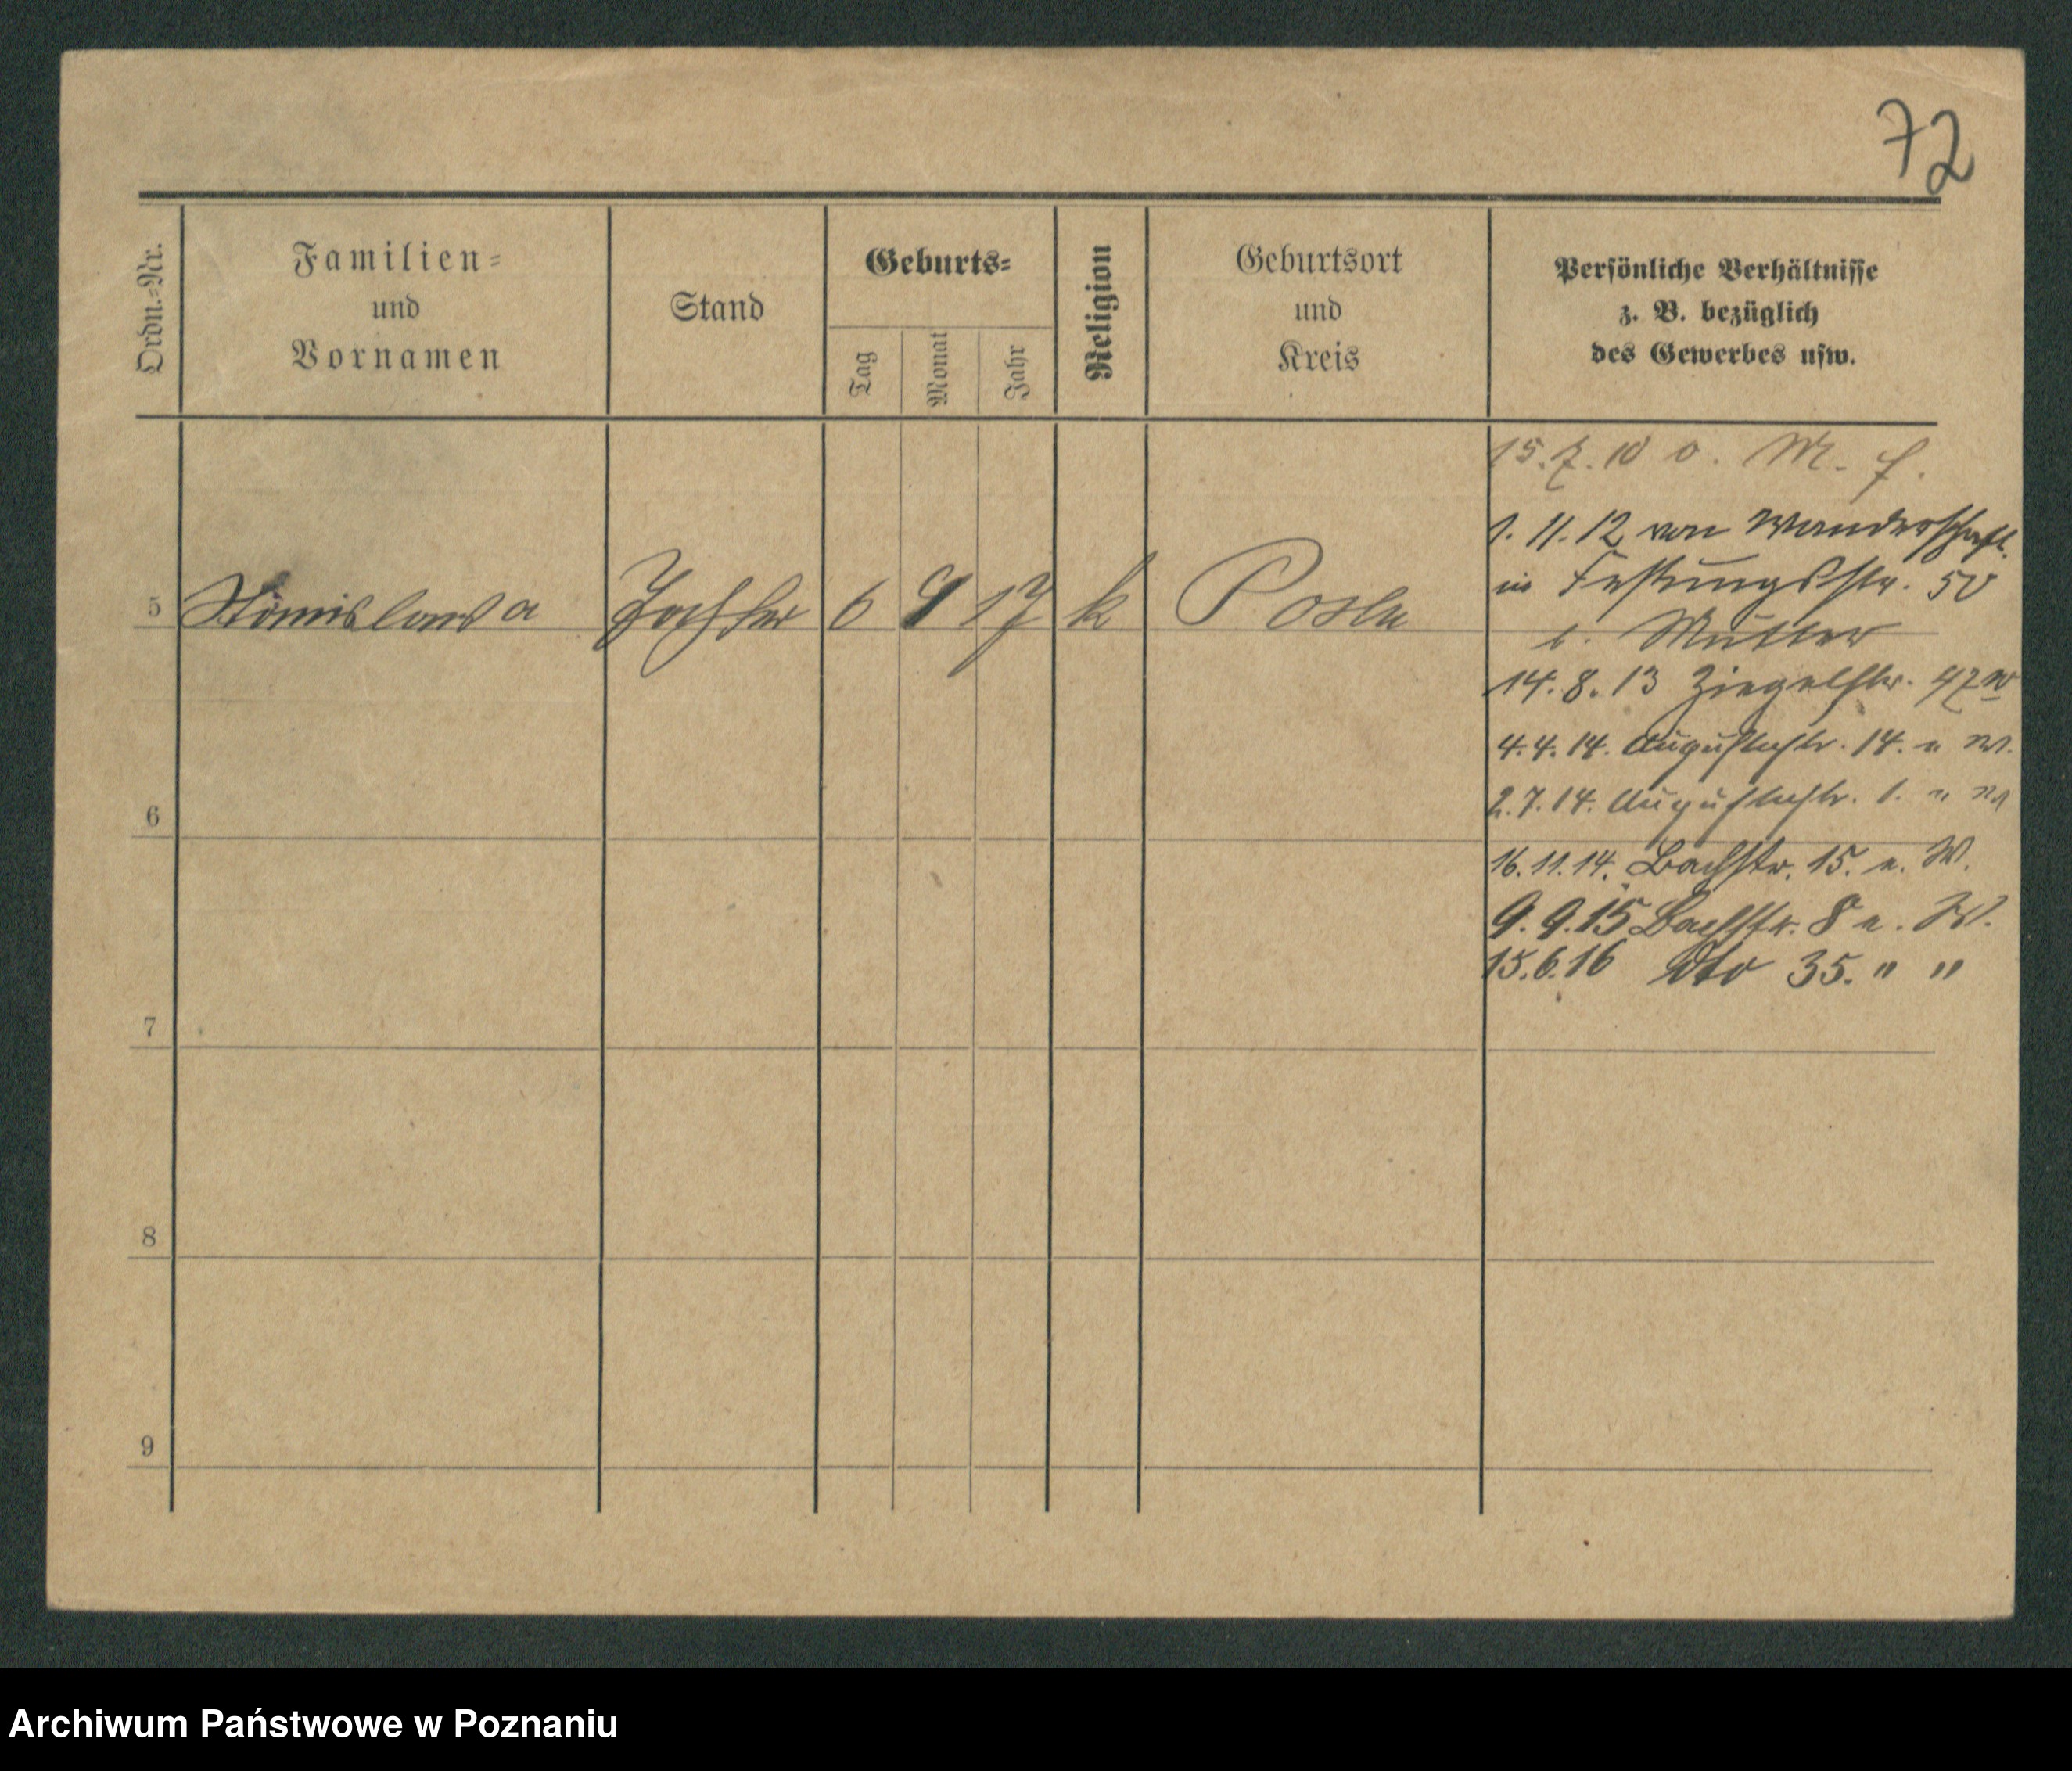 72
Ordn.=Nr.
Familien=
und
Vornamen
Stand
Geburts=
Tag
Monat
Jahr
Religion
Geburtsort
und
Kreis
Persönliche Verhältnisse
z. B. bezüglich
des Gewerbes usw.
15.7.10 o. M. f.
1. 11. 12 von Wanderschaft
in Festungsstr. 50
b. Mutter
5 Stanislawa Tochter 6 9 17 k Posen
14. 8. 13 Ziegelstr. 47
4. 4. 14. Augustastr. 14. e W.
2. 7. 14. Augustastr. 1. e W
6
16. 11. 14. Bachstr. 15. e. W.
9. 9. 15 Bachstr. 8 e. W.
15. 6. 16 dto 35. " "
7
8
9
Archiwum Państwowe w Poznaniu